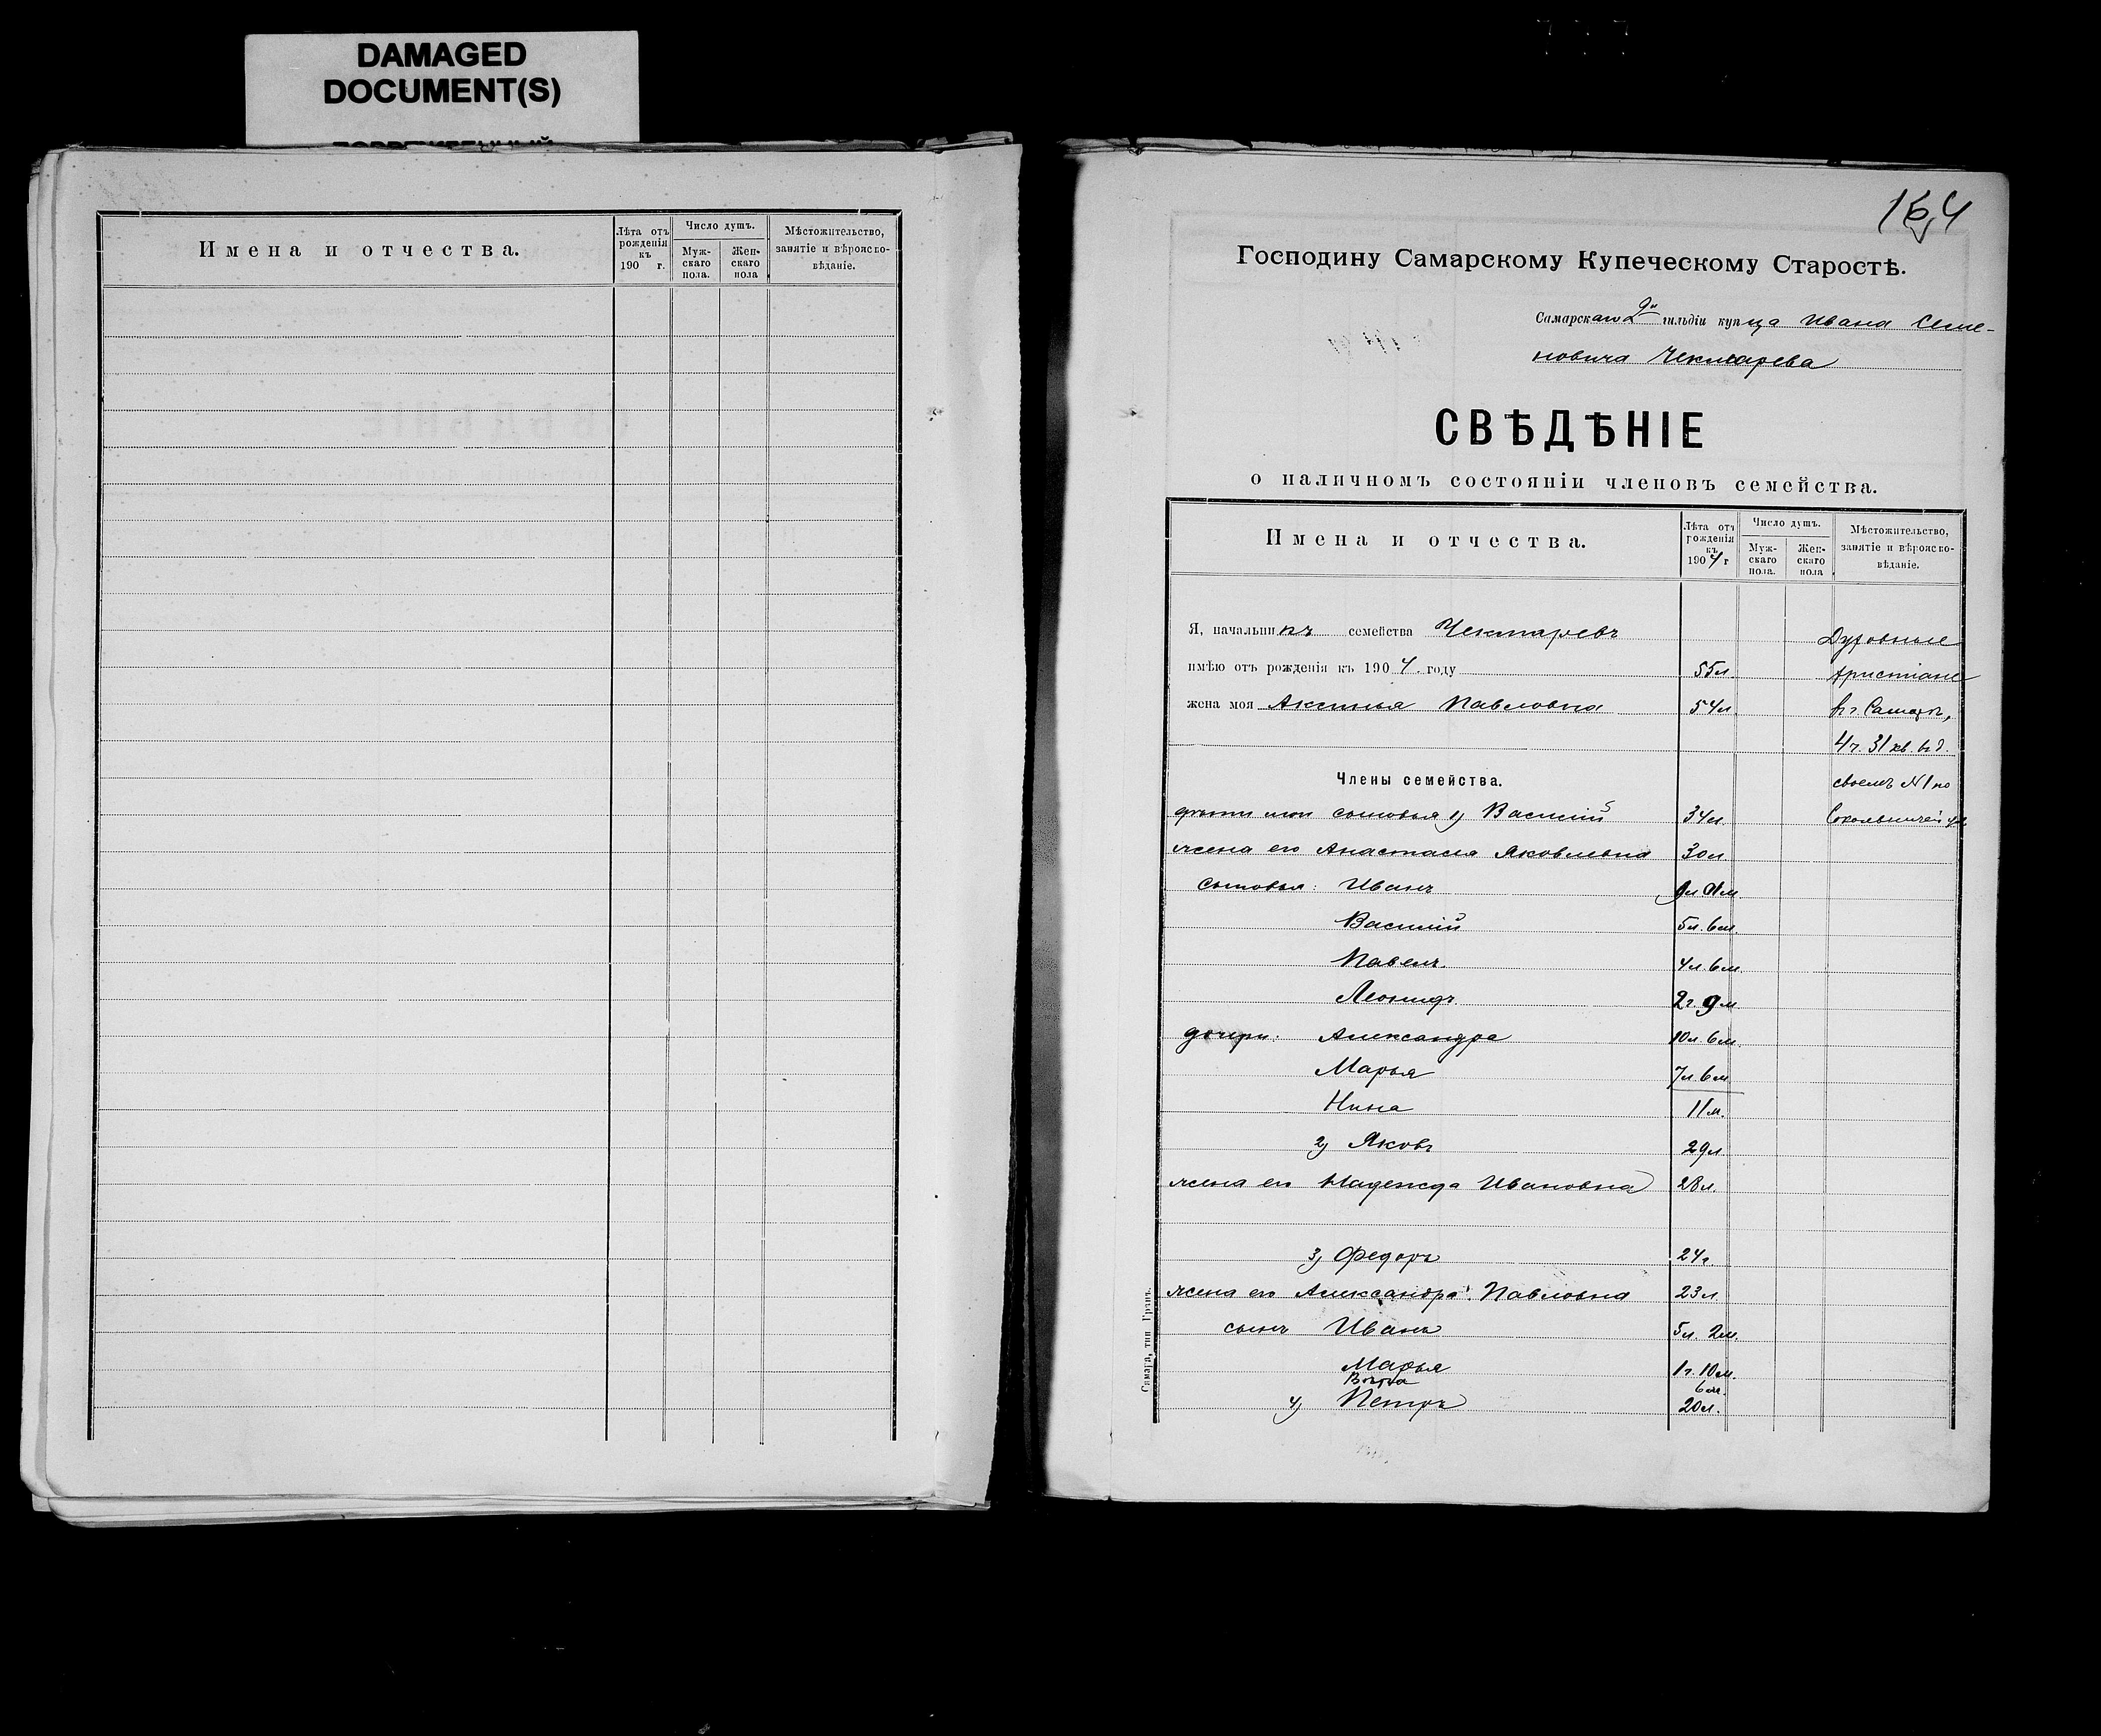 DAMAGED
DOCUMENT(S)
Имена и отчества.
Лѣта отъ рожденія къ 190 г.
Число душъ.
Мужскаго пола.
Женскаго пола
Мѣстожительство, занятіе и вѣроисповѣданіе.
164
Господину Самарскому Купеческому Старостѣ.
Самарскаго 2й гильдіи купца Ивана Семе-
новича Чекмарева
СВѢДѢНІЕ
о наличномъ состояніи членовъ семейства.
Имена и отчества.
Лѣта отъ рожденія къ 1904 г
Число душъ.
Муж-скаго пола.
Жен-скаго пола
Мѣстожительство, занятіе и вѣроисповѣданіе.
Я, начальникъ семейства Чекмаревъ Духовные
имѣю отъ рожденія къ 1904. году 55л. христіане
жена моя Аксинья Павловна 54л. Въ г. Самарѣ,
4ч. 31 кв. въ д.
Члены семейства. своемъ №1 по
дѣти мои сыновья 1) Василій 34л. Сокольничей ул.
жена его Анастасія Яковлевна 30л.
сыновья: Иванъ
Василій 5л. 6м.
Павелъ. 4л. 6м.
Леонидъ. 2г. 9м.
дочери: Александра 10л. 6м.
Марья 7л. 6м.
Нина 11м.
2) Яковъ 29л.
жена его Надежда Ивановна 28л.
3) Федоръ 24г.
жена его Александра Павловна 23л.
сынъ Иванъ 5л. 2м.
Марья 1г. 10м.
6м.
4) Петръ 20л.
Самара, тип. Гранъ.